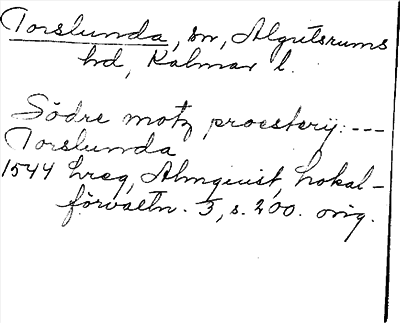 Torslunda, sn, Algutsrums
hd, Kalmar l.
Södre motz proesterij: ---
Torslunda
1544 hreg, Almquist, Lokal-
förvaltn. 3, s. 200. orig.